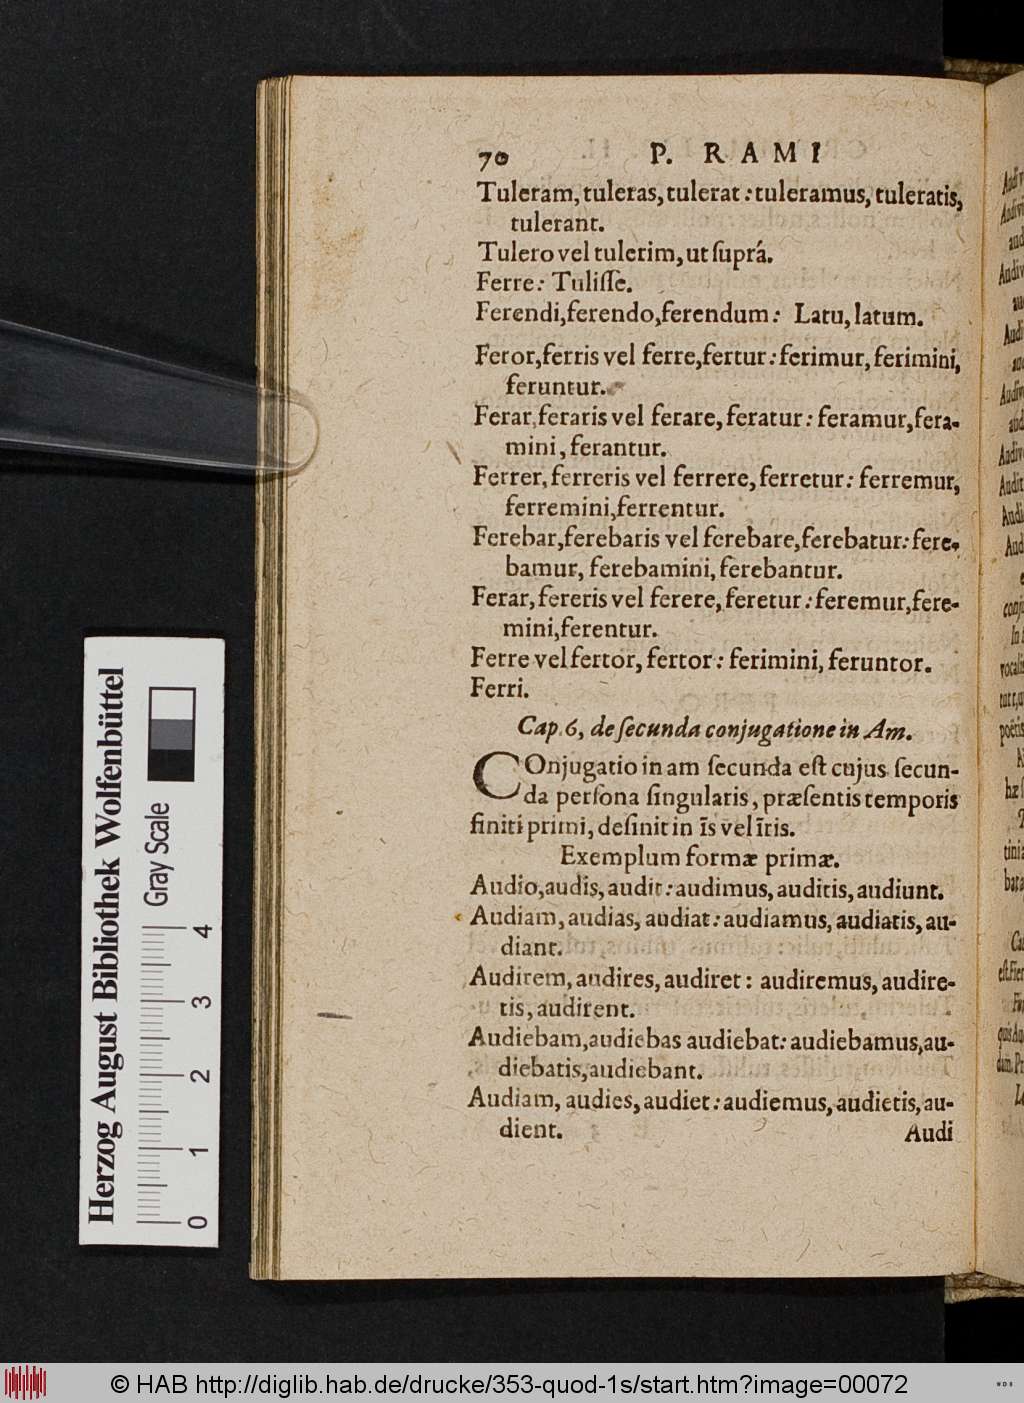 70 P. RAMI
Tuleram, tuleras, tulerat: tuleramus, tuleratis,
tulerant.
Tulero vel tulerim, ut ſuprá.
Ferre: Tuliſſe.
Ferendi, ferendo, ferendum: Latu, latum.
Feror, ferris vel ferre, fertur: ferimur, ferimini,
feruntur.
Ferar, feraris vel ferare, feratur: feramur, fera-
mini, ferantur.
Ferrer, ferreris vel ferrere, ferretur: ferremur,
ferremini, ferrentur.
Ferebar, ferebaris vel ferebare, ferebatur: fere-
bamur, ferebamini, ferebantur.
Ferar, fereris vel ferere, feretur: feremur, fere-
mini, ferentur.
Ferre vel fertor, fertor: ferimini, feruntor.
Ferri.
Cap. 6, de ſecunda conjugatione in Am.
COnjugatio in am ſecunda eſt cujus ſecun-
da perſona ſingularis, præſentis temporis
finiti primi, deſinit in īs vel īris.
Exemplum formæ primæ.
Audio, audis, audit: audimus, auditis, audiunt.
Audiam, audias, audiat: audiamus, audiatis, au-
diant.
Audirem, audires, audiret: audiremus, audire-
tis, audirent.
Audiebam, audiebas audiebat: audiebamus, au-
diebatis, audiebant.
Audiam, audies, audiet: audiemus, audietis, au-
dient. Audi
Herzog August Bibliothek Wolfenbüttel
Gray Scale
0 1 2 3 4
© HAB http://diglib.hab.de/drucke/353-quod-1s/start.htm?image=00072